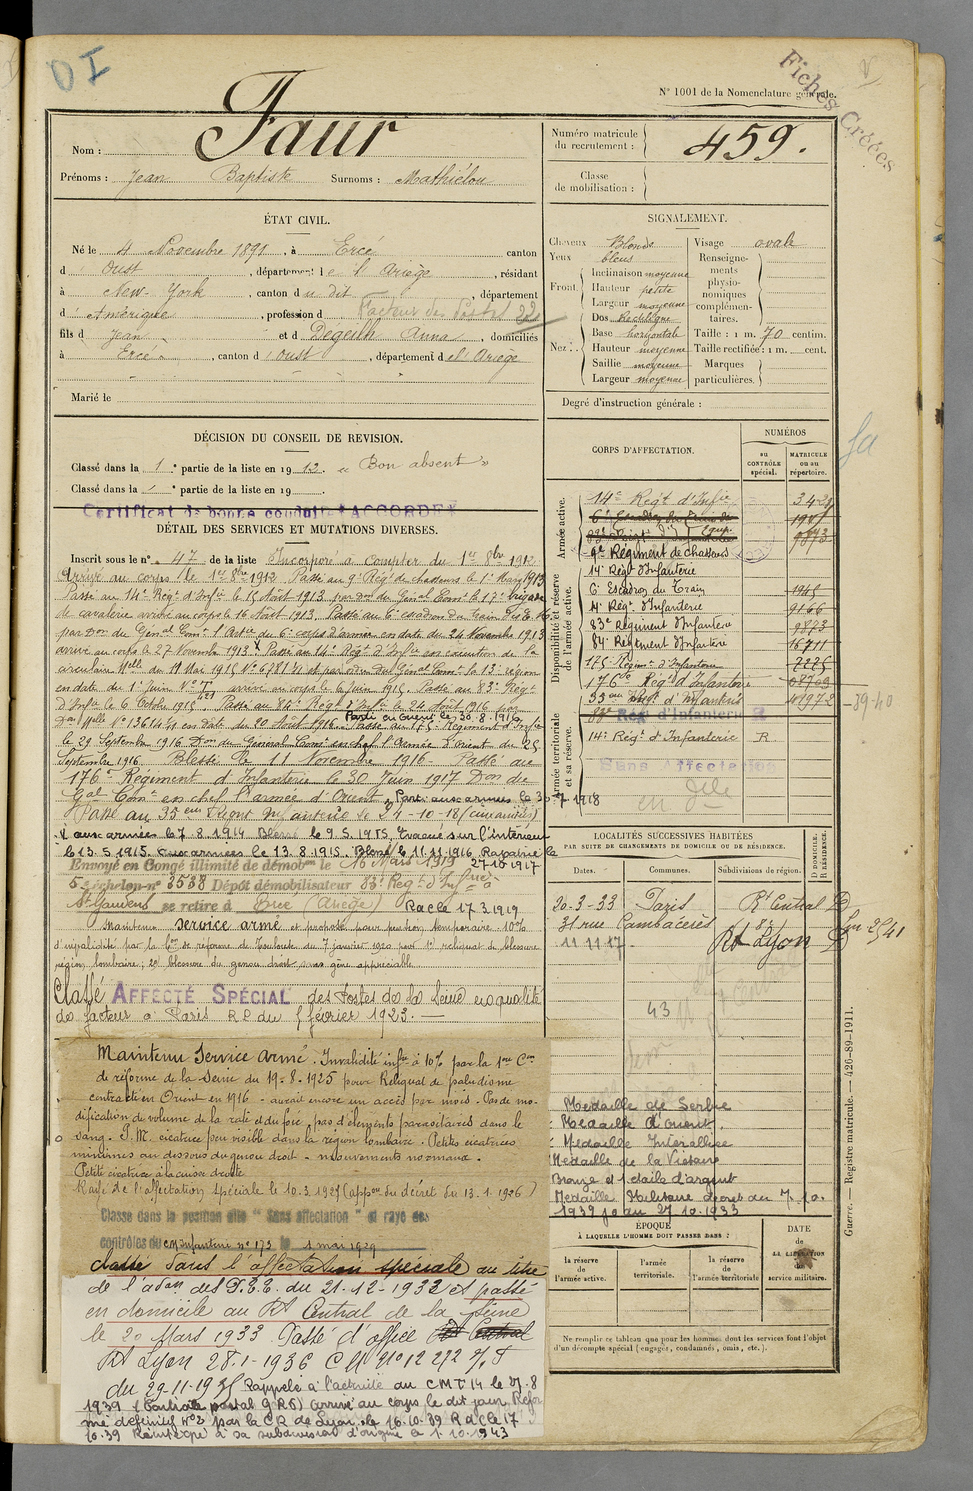 D I
Fiches Créées
N° 1001 de la Nomenclature générale.
Nom : Faur
Prénoms : Jean Baptiste Surnoms : Mathiélou
Numéro matricule du recrutement : 459.
Classe de mobilisation :
ÉTAT CIVIL.
Né le 4 Novembre 1891, à Ercé canton
d'Oust, département de l'Ariège, résidant
à New-York, canton du dit, département
d'Amérique, profession d Facteur des Postes 22
fils d Jean et d Degeilh Anna, domiciliés
à Ercé, canton d'Oust, département de l'Ariège
Marié le
SIGNALEMENT.
Cheveux Blonds
Yeux bleus
Front. Inclinaison moyenne
Hauteur petite
Largeur moyenne
Nez. Dos Rectiligne
Base horizontale
Hauteur moyenne
Saillie moyenne
Largeur moyenne
Visage ovale
Renseignements physionomiques complémentaires.
Taille : 1 m. 70 centim.
Taille rectifiée : 1 m. cent.
Marques particulières.
Degré d'instruction générale :
DÉCISION DU CONSEIL DE REVISION.
Classé dans la 1e partie de la liste en 1912. « Bon absent »
Classé dans la partie de la liste en 19
Certificat de bonne conduite "ACCORDÉ"
DÉTAIL DES SERVICES ET MUTATIONS DIVERSES.
Inscrit sous le n° 47 de la liste Incorporé à compter du 1er 8bre 1912
Arrivé au corps le 1er 8bre 1912 Passé au 9e Régt de chasseurs le 1er Mars 1913
Passé au 14e Régt d'Infie le 15 Août 1913 par don du Général Comt la 17e brigade
de cavalerie arrivé au corps le 16 Août 1913. Passé au 6e escadron du train
par Don du Général Comt l'Artie du 6e corps d'armée en date du 24 Novembre 1913
arrivé au corps le 27 Novembre 1913. Passé au 14e Régt d'Infie en exécution de la
circulaire Mlle du 19 Mai 1915 N° 6781 et par ordre du Général Comt la 13e région
en date du 1 Juin arrivé au corps le 6 Juin 1915. Passé au 83e Régt
d'Infie le 6 Octobre 1915. Passé au 84e Régt d'Infie le 24 Août 1916 par
Don Mlle N° 13614 en date du 20 Août 1916. Parti en Orient le 30.8.1916 Passé au 175e Régiment d'Infie
le 29 Septembre 1916 Don du Général Comt en chef l'Armée d'Orient du 25
Septembre 1916. Blessé le 11 Novembre 1916 - Passé au
176e Régiment d'Infanterie le 30 Juin 1917 Don du
Gal Comt en chef l'armée d'Orient. Parti aux armées le 30.7.1918
Passé au 35ème Régnt Infanterie le 24-10-18
aux armées le 7.8.1914 Blessé le 9.5.1915. Evacué sur l'intérieur
le 13.5.1915. aux armées le 13.8.1915. Blessé le 11.11.1916. Rapatrié le
27.10.1917
Envoyé en Congé illimité de démobon le 16 Mars 1919
5 échelon n° 3538 Dépôt démobilisateur 83e Régt d'Infrie à
St Gaudens se retire à Ercé (Ariège) R a c le 17.3.1919
Maintenu service armé et proposé pour pension temporaire - 10%
d'invalidité par la Con de réforme de Toulouse du 7 janvier 1920 pour 1° reliquat de blessure
région lombaire; 2° blessure du genou droit sans gêne appréciable
Classé AFFECTÉ SPÉCIAL des Postes de la Seine en qualité
de facteur à Paris R P du 5 février 1923.
Maintenu Service Armé. Invalidité infre à 10% par la 1re Con
de réforme de la Seine du 19-8-1925 pour Reliquat de paludisme
contracté en Orient en 1916 - aurait encore un accès par mois. Pas de mo-
dification de volume de la rate et du foie, pas d'éléments parasitaires dans le
sang. I.M. cicatrice peu visible dans la région lombaire. Petites cicatrices
minimes au dessous du genou droit - mouvements normaux.
Petite cicatrice à la cuisse droite
Rayé de l'affectation spéciale le 10.3.1927 (appon du décret du 13.1.1926)
Classé dans la position dite "Sans affectation" et rayé des
contrôles du CM Infanterie n° 173 le 1 mai 1929
classé dans l'affectation spéciale au titre
de l'adon des P.T.T. du 21-12-1932 et passé
en domicile au Rt Central de la Seine
le 20 Mars 1933 Passé d'office
Rt Lyon 28-1-1936 CM N° 12272
du 29-11-1935 Rappelé à l'activité au CMT 14 le 27.8
1939 (Contrôle postal G R 5) arrivé au corps le dit jour. Réfor
mé définitif N°2 par la CR de Lyon le 16.10.39 R a c le 17
10.39 Réintégré à sa subdivision d'origine le 1.10.1943
CORPS D'AFFECTATION.
NUMÉROS
au CONTRÔLE spécial.
MATRICULE ou au répertoire.
Armée active.
14e Régt d'Infie
9e Régiment de chasseurs
Disponibilité et réserve de l'armée active.
14e Régt d'Infanterie
6e Escadron du Train 1945
14e Régt d'Infanterie 9166
83e Régiment d'Infanterie 9873
84e Régiment d'Infanterie 16711
175e Régimt d'Infanterie 7225
176e Régt d'Infanterie 08709
35eme Régt d'Infanterie 41972
39-40
Armée territoriale et sa réserve.
83e Régt d'Infanterie R
14e Régt d'Infanterie R.
Sans Affectation
LOCALITÉS SUCCESSIVES HABITÉES
PAR SUITE DE CHANGEMENTS DE DOMICILE OU DE RÉSIDENCE.
Dates. Communes. Subdivisions de région. D DOMICILE. R RÉSIDENCE.
20-3-33 Paris Rt Central D
31 rue Cambacérès
Rt Lyon D
43
Médaille de Serbie
Médaille d'Orient.
Médaille Interalliée
Médaille de la Victoire
Bronze et 1 étoile d'argent
Médaille Militaire décret du 7.10.
1933 jo du 27.10.1933
ÉPOQUE
À LAQUELLE L'HOMME DOIT PASSER DANS :
la réserve de l'armée active.
l'armée territoriale.
la réserve de l'armée territoriale
DATE de LA LIBÉRATION du service militaire.
Ne remplir ce tableau que pour les hommes dont les services font l'objet
d'un décompte spécial (engagés, condamnés, omis, etc.).
Guerre. — Registre matricule. — 426-89-1911.